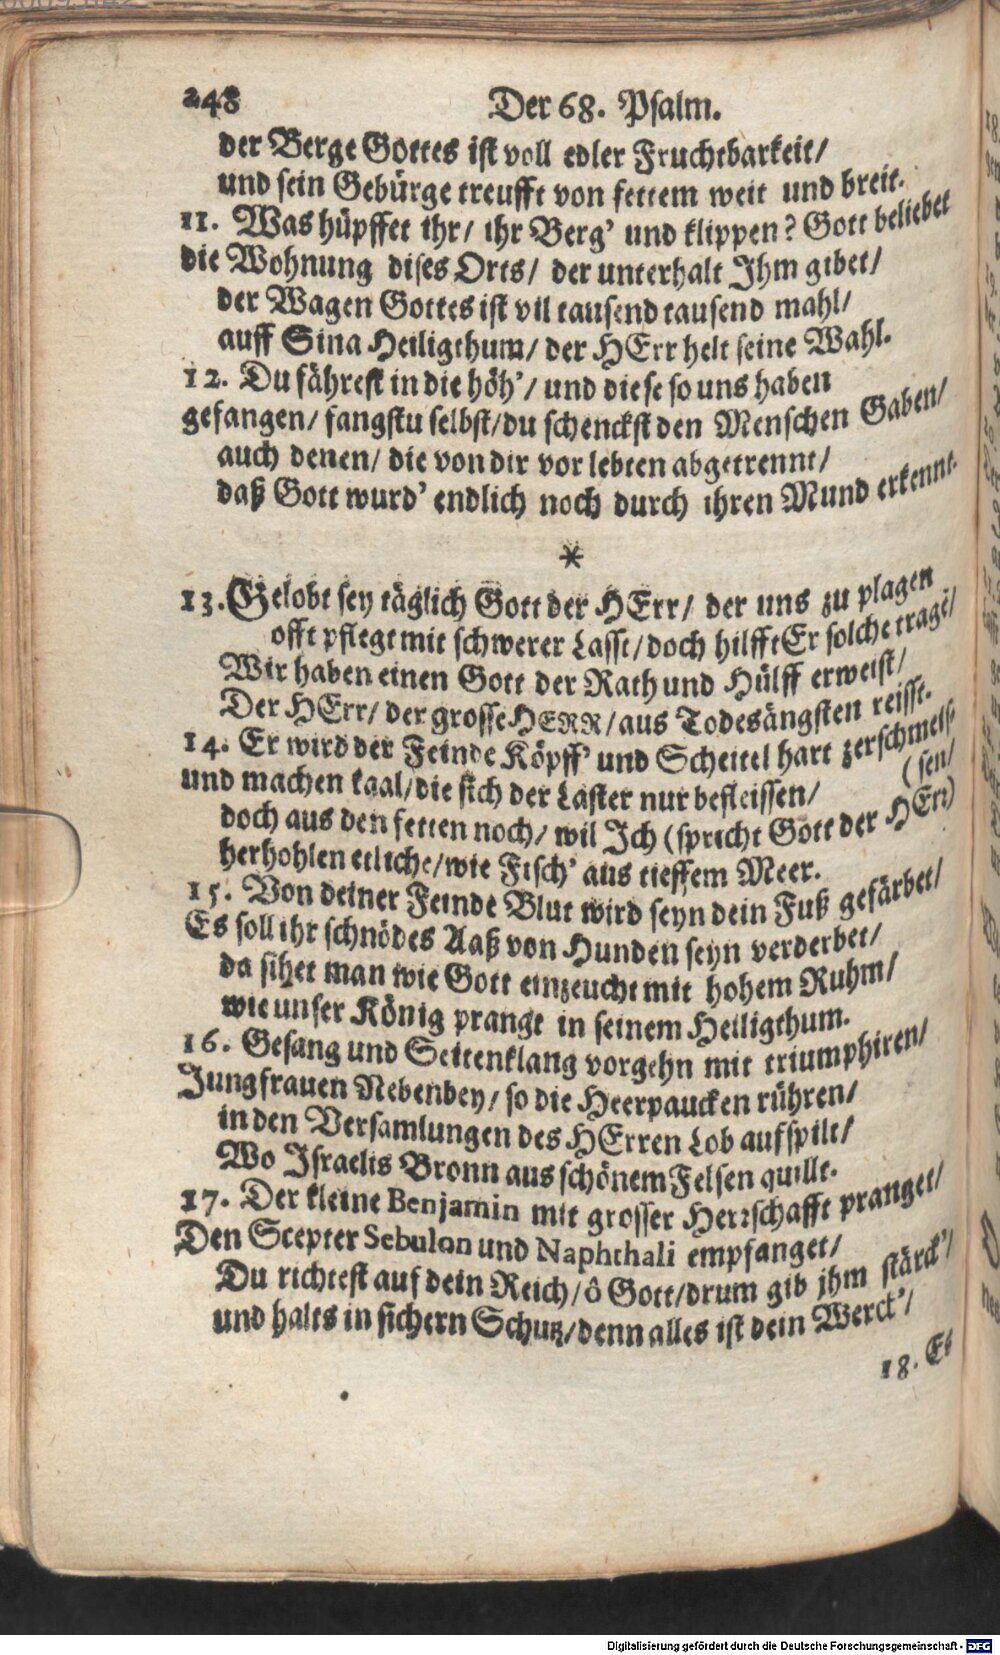 248 Der 68. Psalm.
der Berge Gottes ist voll edler Fruchtbarkeit/
und sein Gebürge treufft von fettem weit und breit.
11. Was hüpffet ihr/ ihr Berg' und klippen? Gott beliebet
die Wohnung dises Orts/ der unterhalt Ihm gibet/
der Wagen Gottes ist vil tausend tausend mahl/
auff Sina Heiligthum/ der HErr helt seine Wahl.
12. Du fährest in die höh'/ und diese so uns haben
gefangen/ fangstu selbst/ du schenckst den Menschen Gaben/
auch denen/ die von dir vor lebten abgetrennt/
daß Gott wurd' endlich noch durch ihren Mund erkennt.
*
13. Gelobt sey täglich Gott der HErr/ der uns zu plagen
offt pflegt mit schwerer Lasst/ doch hilfft Er solche tragē/
Wir haben einen Gott der Rath und Hülff erweist/
Der HErr/ der grosse HERR/ aus Todesängsten reisst.
14. Er wird der Feinde Köpff' und Scheitel hart zerschmeis-
(sen/
und machen kaal/ die sich der Laster nur befleissen/
doch aus den fetten noch/ wil Ich (spricht Gott der HErr)
herhohlen etliche/ wie Fisch' aus tieffem Meer.
15. Von deiner Feinde Blut wird seyn dein Fuß gefärbet/
Es soll ihr schnödes Aaß von Hunden seyn verderbet/
da sihet man wie Gott einzeucht mit hohem Ruhm/
wie unser König prangt in seinem Heiligthum.
16. Gesang und Seitenklang vorgehn mit triumphiren/
Jungfrauen Nebenbey/ so die Heerpaucken rühren/
in den Versamlungen des HErren Lob aufspilt/
Wo Israelis Bronn aus schönem Felsen quillt.
17. Der kleine Benjamin mit grosser Herrschafft pranget/
Den Scepter Sebulon und Naphthali empfanget/
Du richtest auf dein Reich/ ô Gott/ drum gib jhm stärck'/
und halts in sichern Schutz/ denn alles ist dein Werck'/
18. Es
Digitalisierung gefördert durch die Deutsche Forschungsgemeinschaft - DFG